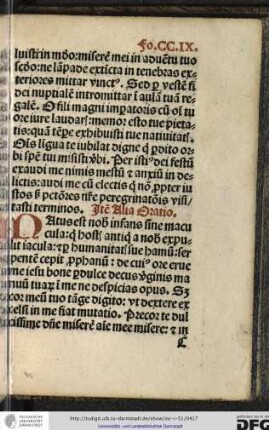 Fo.CC.IX.
luisti in mūdo: miserē mei in aduētu tuo
scdo: ne lāpade extīcta in tenebras ex⸗
teriores mittar vinctꝰ. Sed ꝑ vestē fi
dei nuptialē intromittar ī aulā tuā re⸗
galē. O fili magni impatoris cū ol tu
ore iure laudar: memor esto tue pieta⸗
tis: quā tēꝑe exhibuisti tue natiuitatꝭ.
Oīs ligua te iubilat digne
bi spē tui
exaudi me nimis mestū ⁊ anxiū in de⸗
lictis: audi me cū electis ꝙ nō ꝓpter iu
stos s pctōres nr̄e peregrinatōis visi/
tasti terminos. Itē Alia Oratio.
NAtus est nob infans sine macu
cula: ꝙ hostꝭ antiq̄ a nob expu⸗
lit iacula: ꝛ ꝑ humanitatꝭ sue hamū: ser
pentē cepit ꝓphanū: de cuiꝰ ore erue
me iesu bone ꝑ dulce decus v̄ginis ma
nuū tuaꝝ ī me ne despicias opus. Sꝫ
cor meū tuo tāge digito: vt dextere ex
celsi in me fiat mutatio. Precor te dul
cissime dn̄e miserē aīe mee misere: ⁊ in
C
http://tudigit.ulb.tu-darmstadt.de/show/inc-v-51/0417
Universitäts- und Landesbibliothek Darmstadt